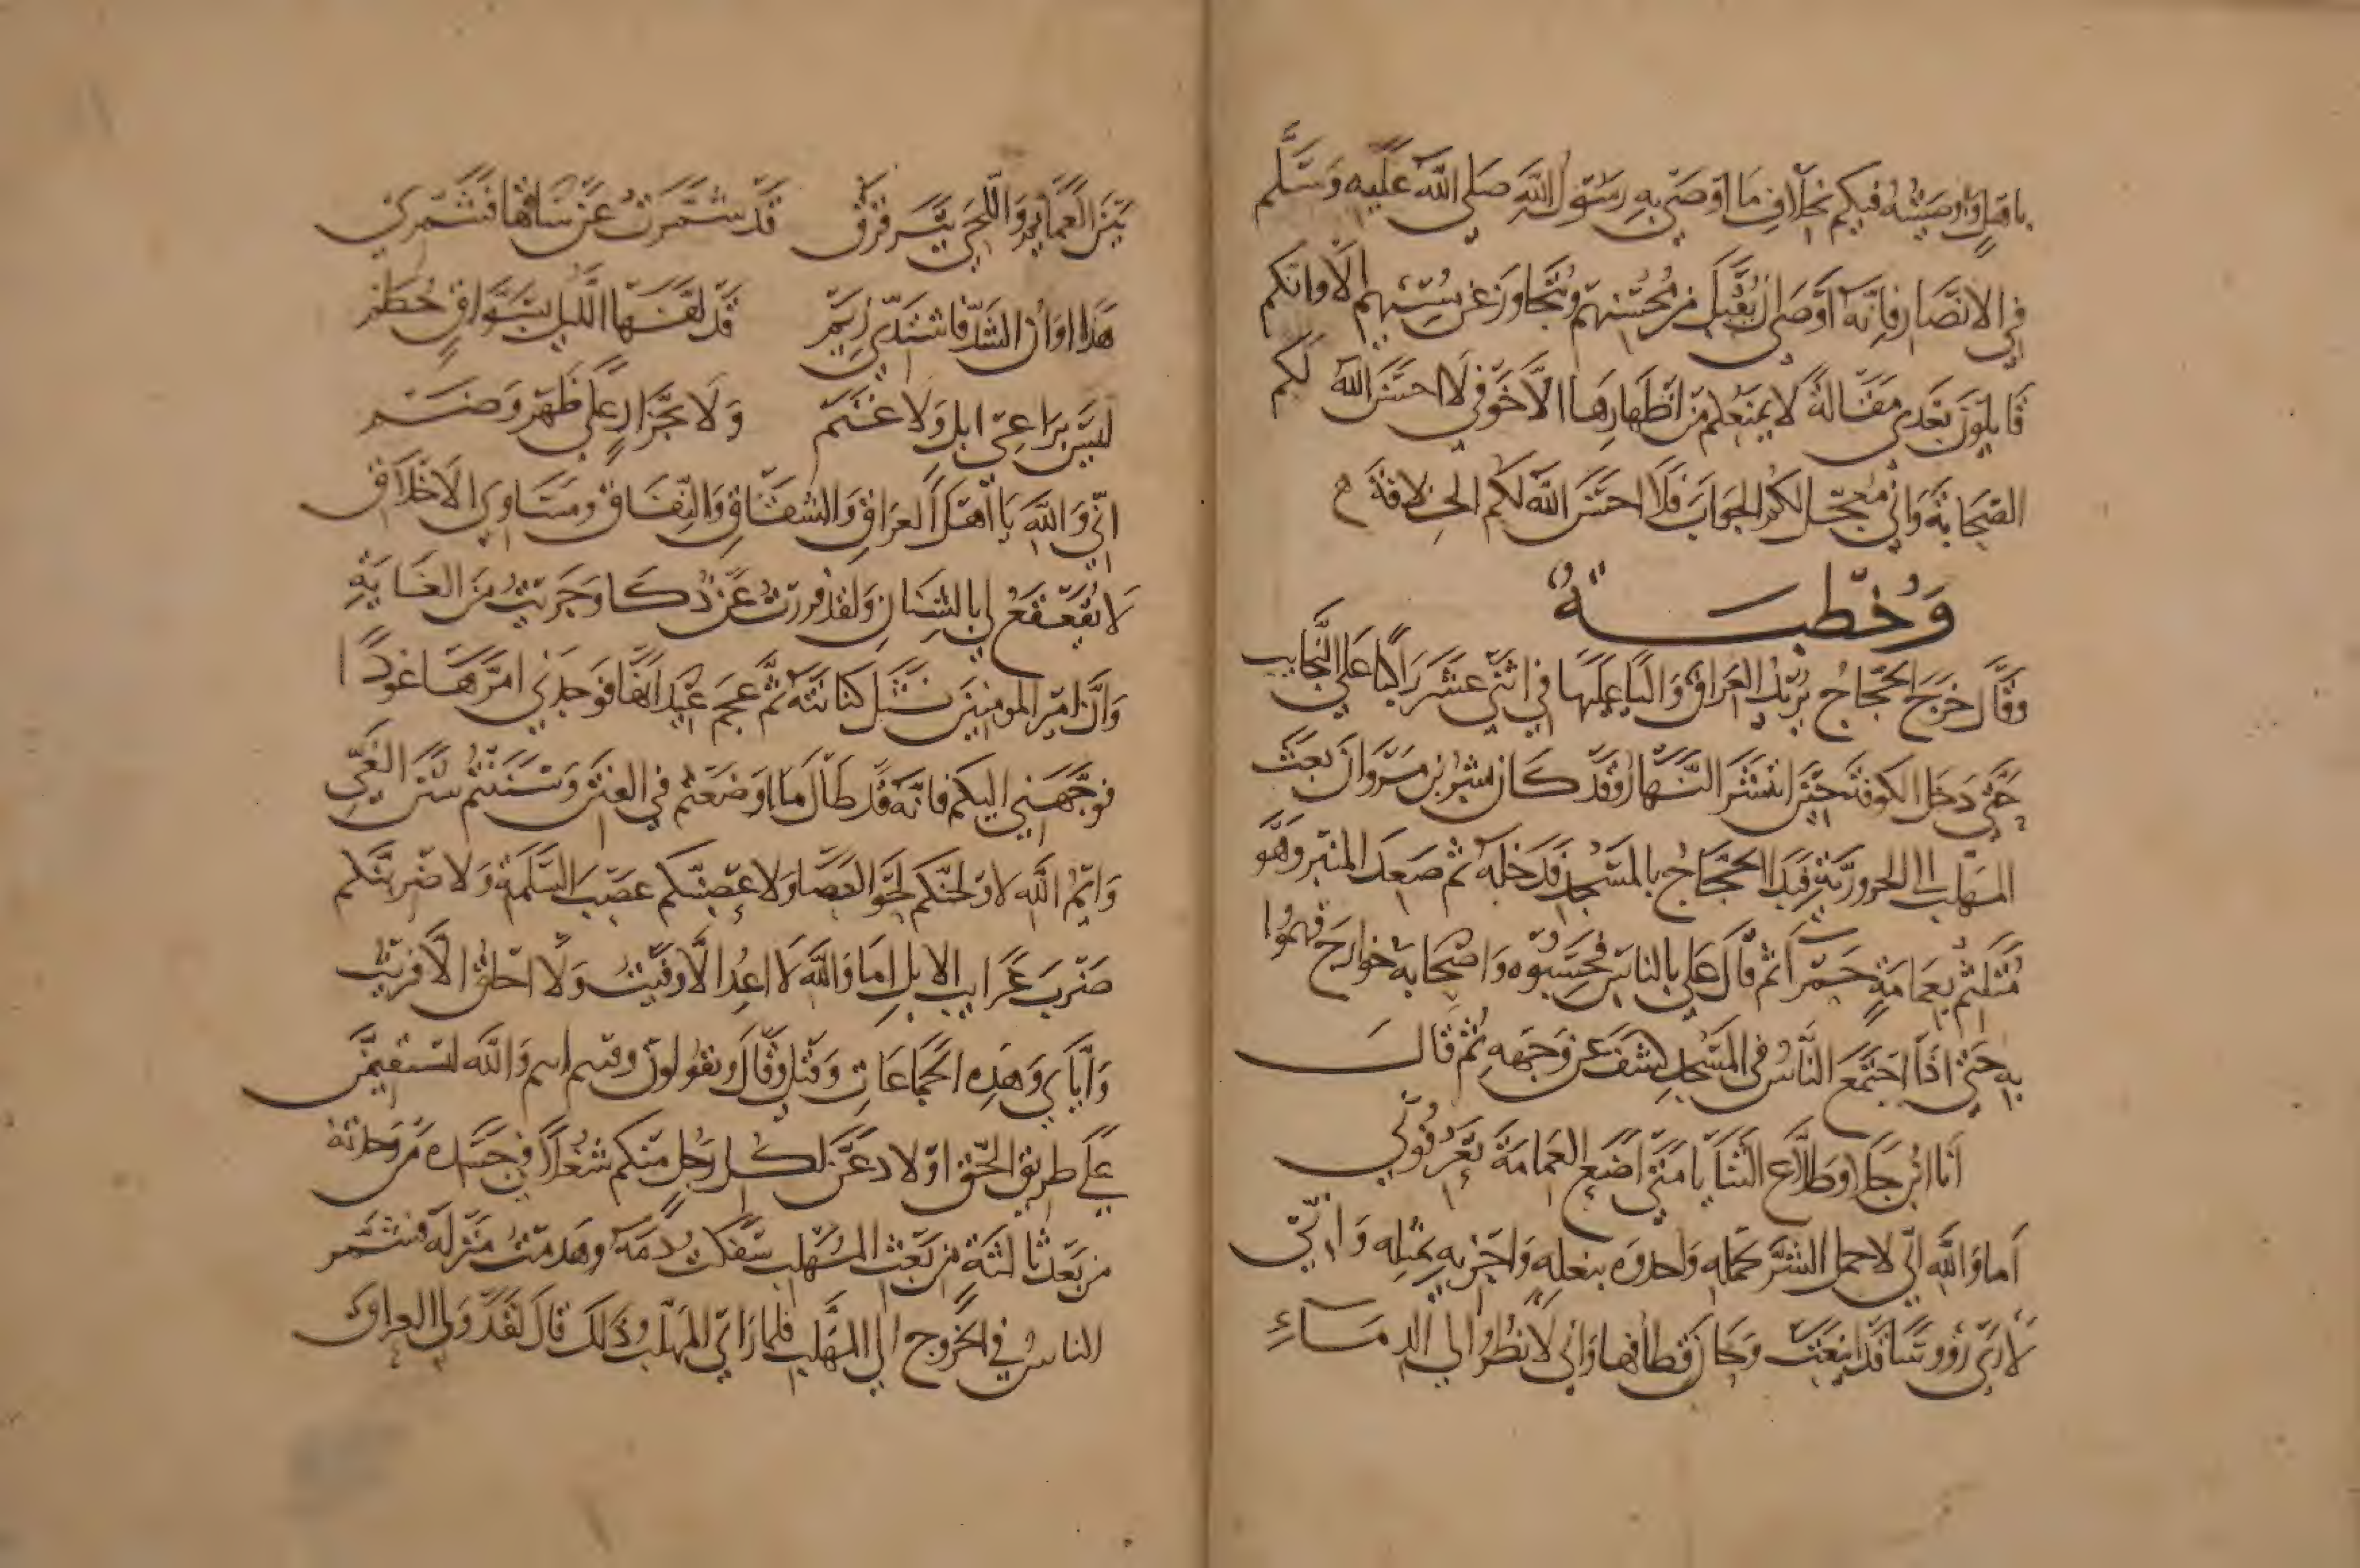 يا قبل وأوصيته فيكم بخلاف ما اوصى به رسول الله صلى الله عليه وسلم
في الانصار فانه اوصى ان يقبل من محسنهم ويتجاوز عن مسيئهم الا وانكم
قايلون بعدي مقالة لا يمنعكم من اظهارها الا خوفي لا احسن الله لكم
الصحابة واني معجل لكم الجواب فلا احسن الله لكم الخلافة
وخطبة
وقال خرج الحجاج يريد العراق واليا عليها في اثني عشر راكبا على النجايب
حتى دخل الكوفة حين انتشر النهار وقد كان بشر بن مروان بعث
المهلب الى الحرورية فبدا الحجاج بالمسجد فدخله ثم صعد المنبر وهو
متلثم بعمامة حمرا ثم قال علي بالناس فحسبوه واصحابه خوارج فهموا
به حتى اذا اجتمع الناس في المسجد كشف عن وجهه ثم قال
أنا ابن جلا وطلاع الثنايا متى اضع العمامة تعرفوني
أما والله اني لاحمل الشر بحمله واحذوه بنعله واجزيه بمثله واني
لأرى رؤوسا قد اينعت وحان قطافها واني لانظر الي الدماء
بين العمايم واللحى يترقرق قد شمرت عن ساقها فشمري
هذا اوان الشد فاشتدي زيم قد لفها الليل بسواق حطم
ليس براعي ابل ولا غنم ولا بجزار على ظهر وضم
اني والله يا أهل العراق والشقاق والنفاق ومساوي الاخلاق
لا يقعقع لي بالشنان ولقد فررت عن ذكا وجريت من الغاية
وان امير المومنين نثل كنانته ثم عجم عيدانها فوجدني امرها عودا
فوجهني اليكم فانه قد طال ما اوضعتم في الفتن وسننتم سنن الغي
وايم الله لالحونكم لحو العصا ولاعصبنكم عصب السلمة ولاضربنكم
ضرب غرايب الابل اما والله لا اعد الا وفيت ولا احلق الا فريت
واياي وهذه الجماعات وقيل وقال وتقولون وفيم انتم والله لتستقيمن
على طريق الحق او لادعن لكل رجل منكم شغلا في جسده من وجدته
من بعد ثالثة من بعث المهلب سفكت دمه وهدمت منزله فشمر
الناس في الخروج الي المهلب فلما راي المهلب ذلك قال لقد ولي العراق